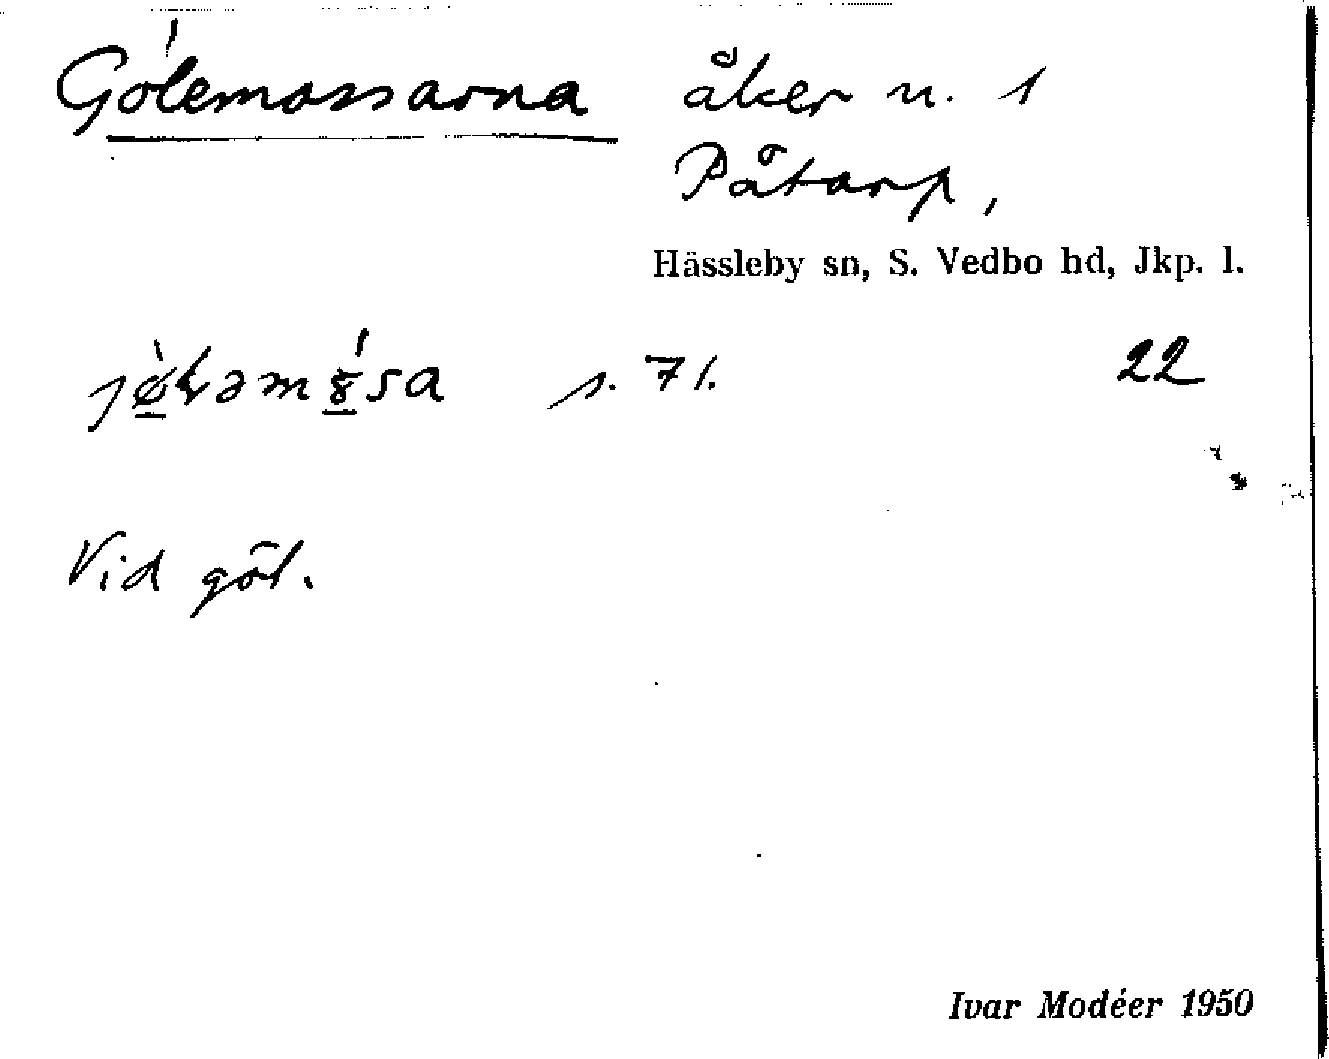 Gölemossarna åker n. 1
Påtarp,
Hässleby sn, S. Vedbo hd, Jkp. l.
s. 71. 22
Vid göl.
Ivar Modéer 1950